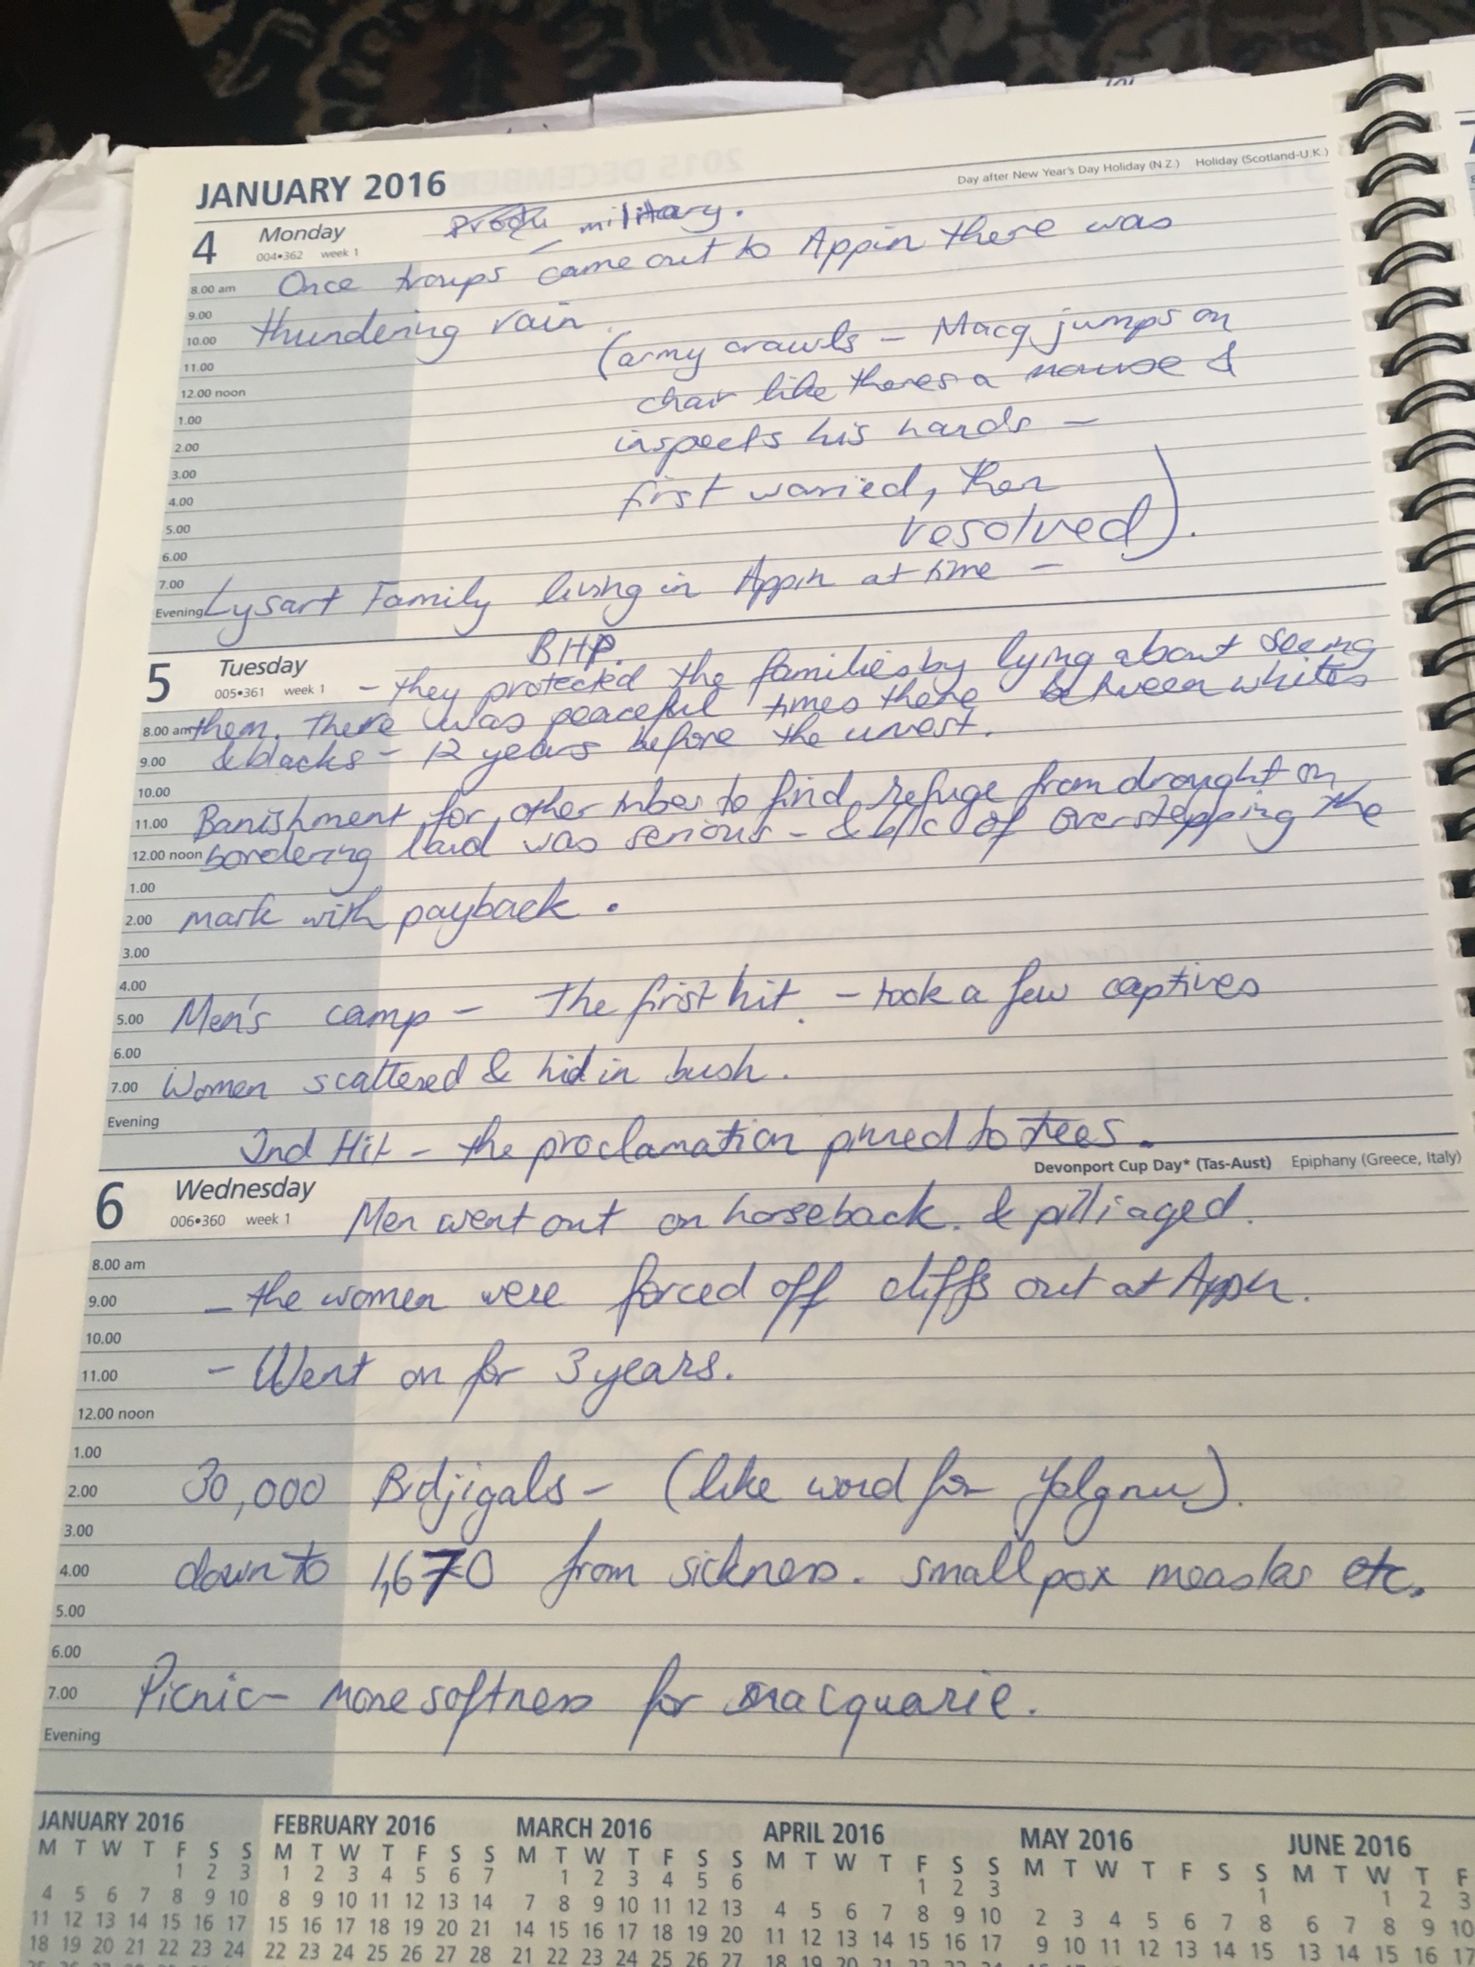 JANUARY 2016
Day after New Year's Day Holiday (N.Z.) Holiday (Scotland-U.K.)
4 Monday
004•362 week 1
military.
8.00 am Once troups came out to Appin there was
9.00
thundering rain.
10.00
(army crawls – Macq jumps on
11.00
12.00 noon
chair like theres a mouse &
1.00
inspects his hands –
2.00
3.00
first worried, then
4.00
resolved).
5.00
6.00
7.00
Evening Lysart Family living in Appin at time –
BHP.
5 Tuesday
005•361 week 1
– they protected the families by lying about seeing
8.00 am them. There was peaceful times there between whites
9.00 & blacks – 12 years before the unrest.
10.00
11.00 Banishment for other tribes to find refuge from drought on
12.00 noon bordering land was serious – & b/c of overstepping the
1.00
2.00 mark with payback.
3.00
4.00
5.00 Men's camp – The first hit. – took a few captives
6.00
7.00 Women scattered & hid in bush.
Evening
2nd Hit – the proclamation pinned to trees.
Devonport Cup Day* (Tas-Aust) Epiphany (Greece, Italy)
6 Wednesday
006•360 week 1
Men went out on horseback. & pilliaged.
8.00 am
9.00 – the women were forced off cliffs out at Appin.
10.00
11.00 – Went on for 3 years.
12.00 noon
1.00
2.00 30,000 Bidjigals – (like word for Yolgnu).
3.00
4.00 down to 1,670 from sickness. small pox measles etc.
5.00
6.00
7.00 Picnic – more softness for macquarie.
Evening
JANUARY 2016 FEBRUARY 2016 MARCH 2016 APRIL 2016 MAY 2016 JUNE 2016
M T W T F S S M T W T F S S M T W T F S S M T W T F S S M T W T F S S M T W T F
1 2 3 1 2 3 4 5 6 7 1 2 3 4 5 6 1 2 3 1 1 2 3
4 5 6 7 8 9 10 8 9 10 11 12 13 14 7 8 9 10 11 12 13 4 5 6 7 8 9 10 2 3 4 5 6 7 8 6 7 8 9 10
11 12 13 14 15 16 17 15 16 17 18 19 20 21 14 15 16 17 18 19 20 11 12 13 14 15 16 17 9 10 11 12 13 14 15 13 14 15 16 17
18 19 20 21 22 23 24 22 23 24 25 26 27 28 21 22 23 24 25 26 27 18 19 20 21 22 23 24